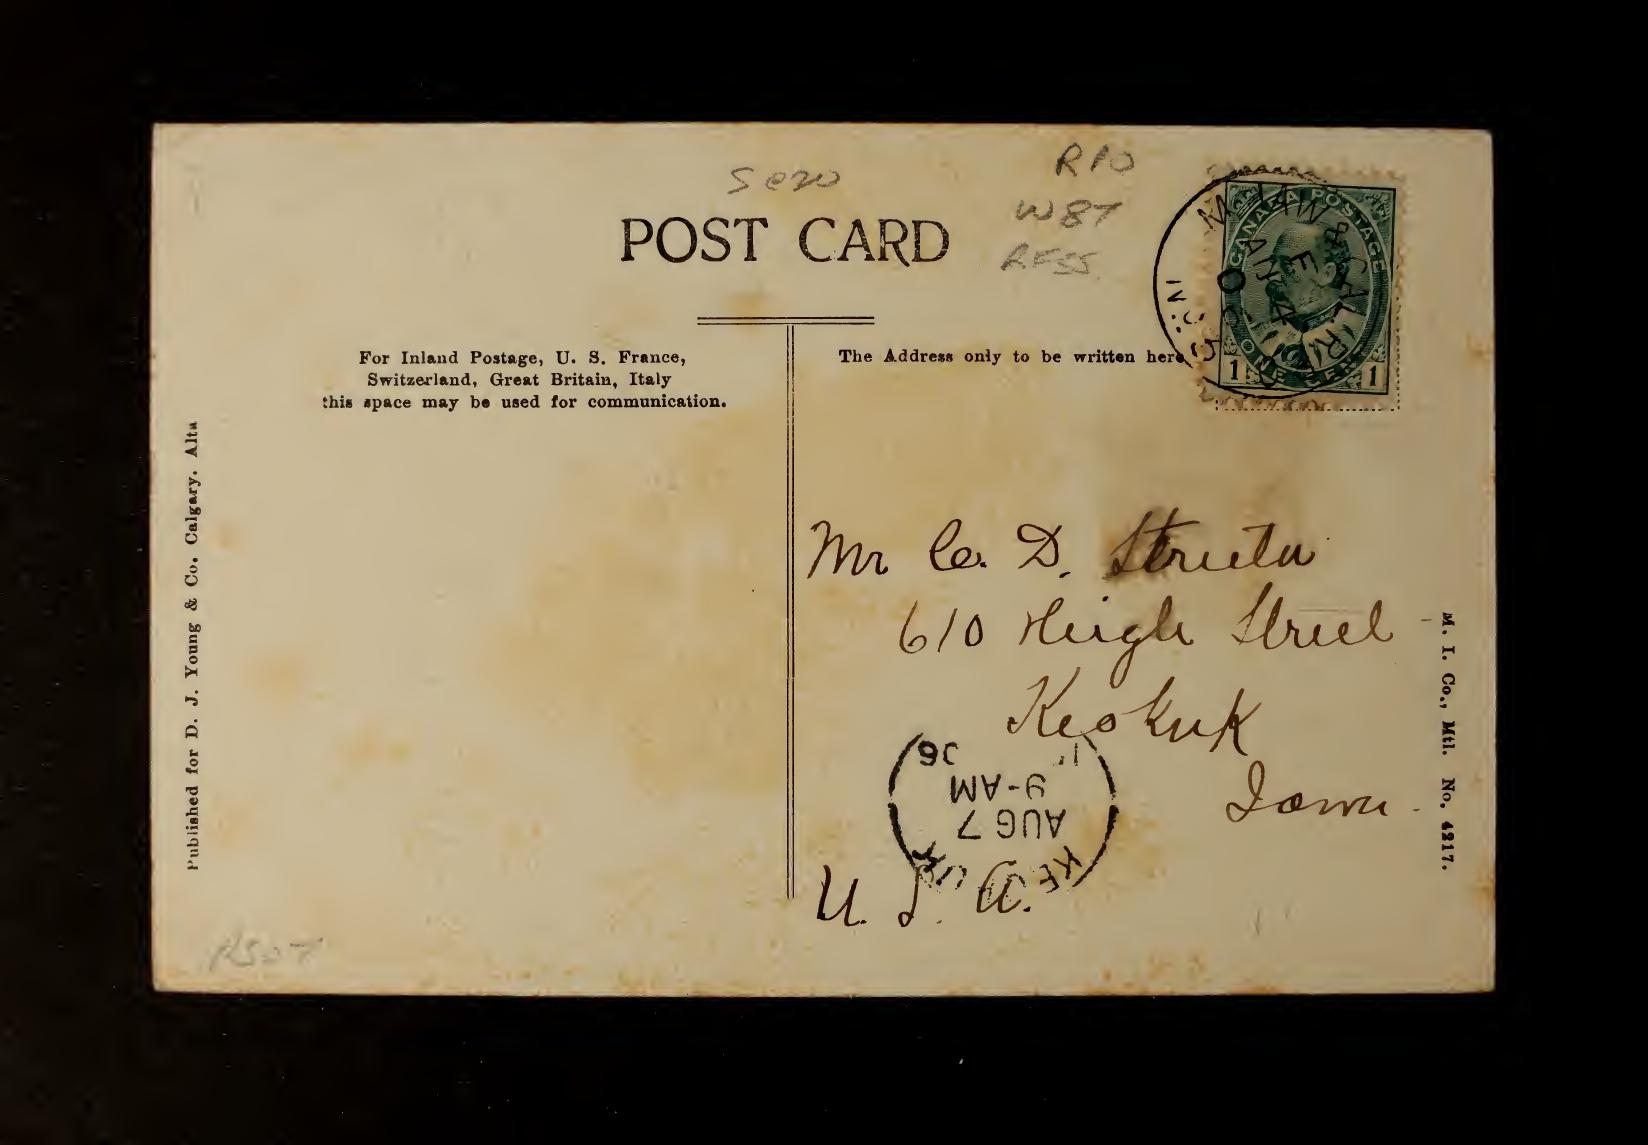 S e20
R10
W87
RF55
POST CARD
CANADA POSTAGE
1 ONE CENT 1
M. JAW & CAL. R.P.O.
No. 5
For Inland Postage, U. S. France,
Switzerland, Great Britain, Italy
this space may be used for communication.
The Address only to be written here
Published for D. J. Young & Co. Calgary. Alta
Mr C. D. Streeter
610 High Street
Keokuk
Iowa
U. S. A.
KEOKUK
AUG 7
9-AM
M. I. Co., Mtl. No. 4217.
R507